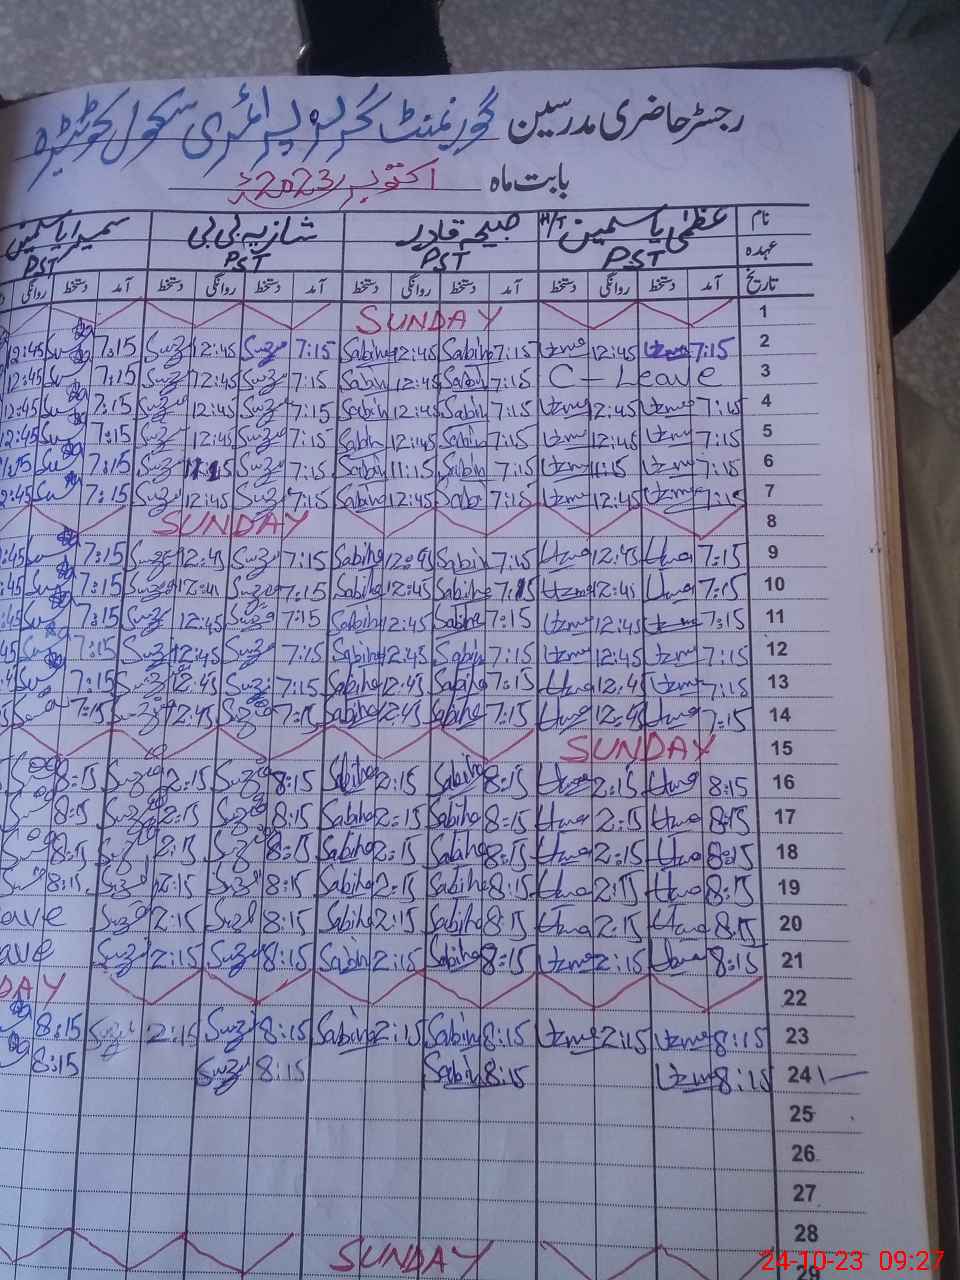 رجسٹر حاضری مدرسین گورنمنٹ گرلز پرائمری سکول
بابت ماہ اکتوبر 2023ء
نام عظمیٰ یاسمین H/T صبیحہ قادر شازیہ بی بی سمیرا یاسمین
عہدہ PST PST PST PST
تاریخ آمد دستخط روانگی دستخط آمد دستخط روانگی دستخط آمد دستخط روانگی دستخط آمد دستخط روانگی
1 SUNDAY
2 7:15 Uzma 12:45 Uzma 7:15 Sabiha 12:45 Sabiha 7:15 12:45 7:15 12:45
3 C-Leave 7:15 Sabiha 12:45 Sabiha 7:15 12:45 7:15 12:45
4 7:15 Uzma 12:45 Uzma 7:15 Sabiha 12:45 Sabiha 7:15 12:45 7:15 12:45
5 7:15 Uzma 12:45 Uzma 7:15 Sabiha 12:45 Sabiha 7:15 12:45 7:15 12:45
6 7:15 Uzma 11:15 Uzma 7:15 Sabiha 11:15 Sabiha 7:15 11:15 7:15
7 7:15 Uzma 12:45 Uzma 7:15 Sabiha 12:45 Sabiha 7:15 12:45 7:15 2:45
8 SUNDAY
9 7:15 Uzma 12:45 Uzma 7:15 Sabiha 12:45 Sabiha 7:15 12:45 7:15 :45
10 7:15 Uzma 12:45 Uzma 7:15 Sabiha 12:45 Sabiha 7:15 12:45 7:15 :45
11 7:15 Uzma 12:45 Uzma 7:15 Sabiha 12:45 Sabiha 7:15 12:45 7:15 :45
12 7:15 Uzma 12:45 Uzma 7:15 Sabiha 12:45 Sabiha 7:15 12:45 7:15 45
13 7:15 Uzma 12:45 Uzma 7:15 Sabiha 12:45 Sabiha 7:15 12:45 7:15
14 7:15 Uzma 12:45 Uzma 7:15 Sabiha 12:45 Sabiha 7:15 12:45 7:15
15 SUNDAY
16 8:15 Uzma 2:15 Uzma 8:15 Sabiha 2:15 Sabiha 8:15 2:15 8:15
17 8:15 Uzma 2:15 Uzma 8:15 Sabiha 2:15 Sabiha 8:15 2:15 8:15
18 8:15 Uzma 2:15 Uzma 8:15 Sabiha 2:15 Sabiha 8:15 2:15 8:15
19 8:15 Uzma 2:15 Uzma 8:15 Sabiha 2:15 Sabiha 8:15 2:15 8:15
20 8:15 Uzma 2:15 Uzma 8:15 Sabiha 2:15 Sabiha 8:15 2:15 ave
21 8:15 Uzma 2:15 Uzma 8:15 Sabiha 2:15 Sabiha 8:15 2:15 ave
22 DAY
23 8:15 Uzma 2:15 Uzma 8:15 Sabiha 2:15 Sabiha 8:15 2:15 8:15
24 8:15 Uzma 8:15 Sabiha 8:15 8:15
25
26
27
28
29 SUNDAY
24-10-23 09:27